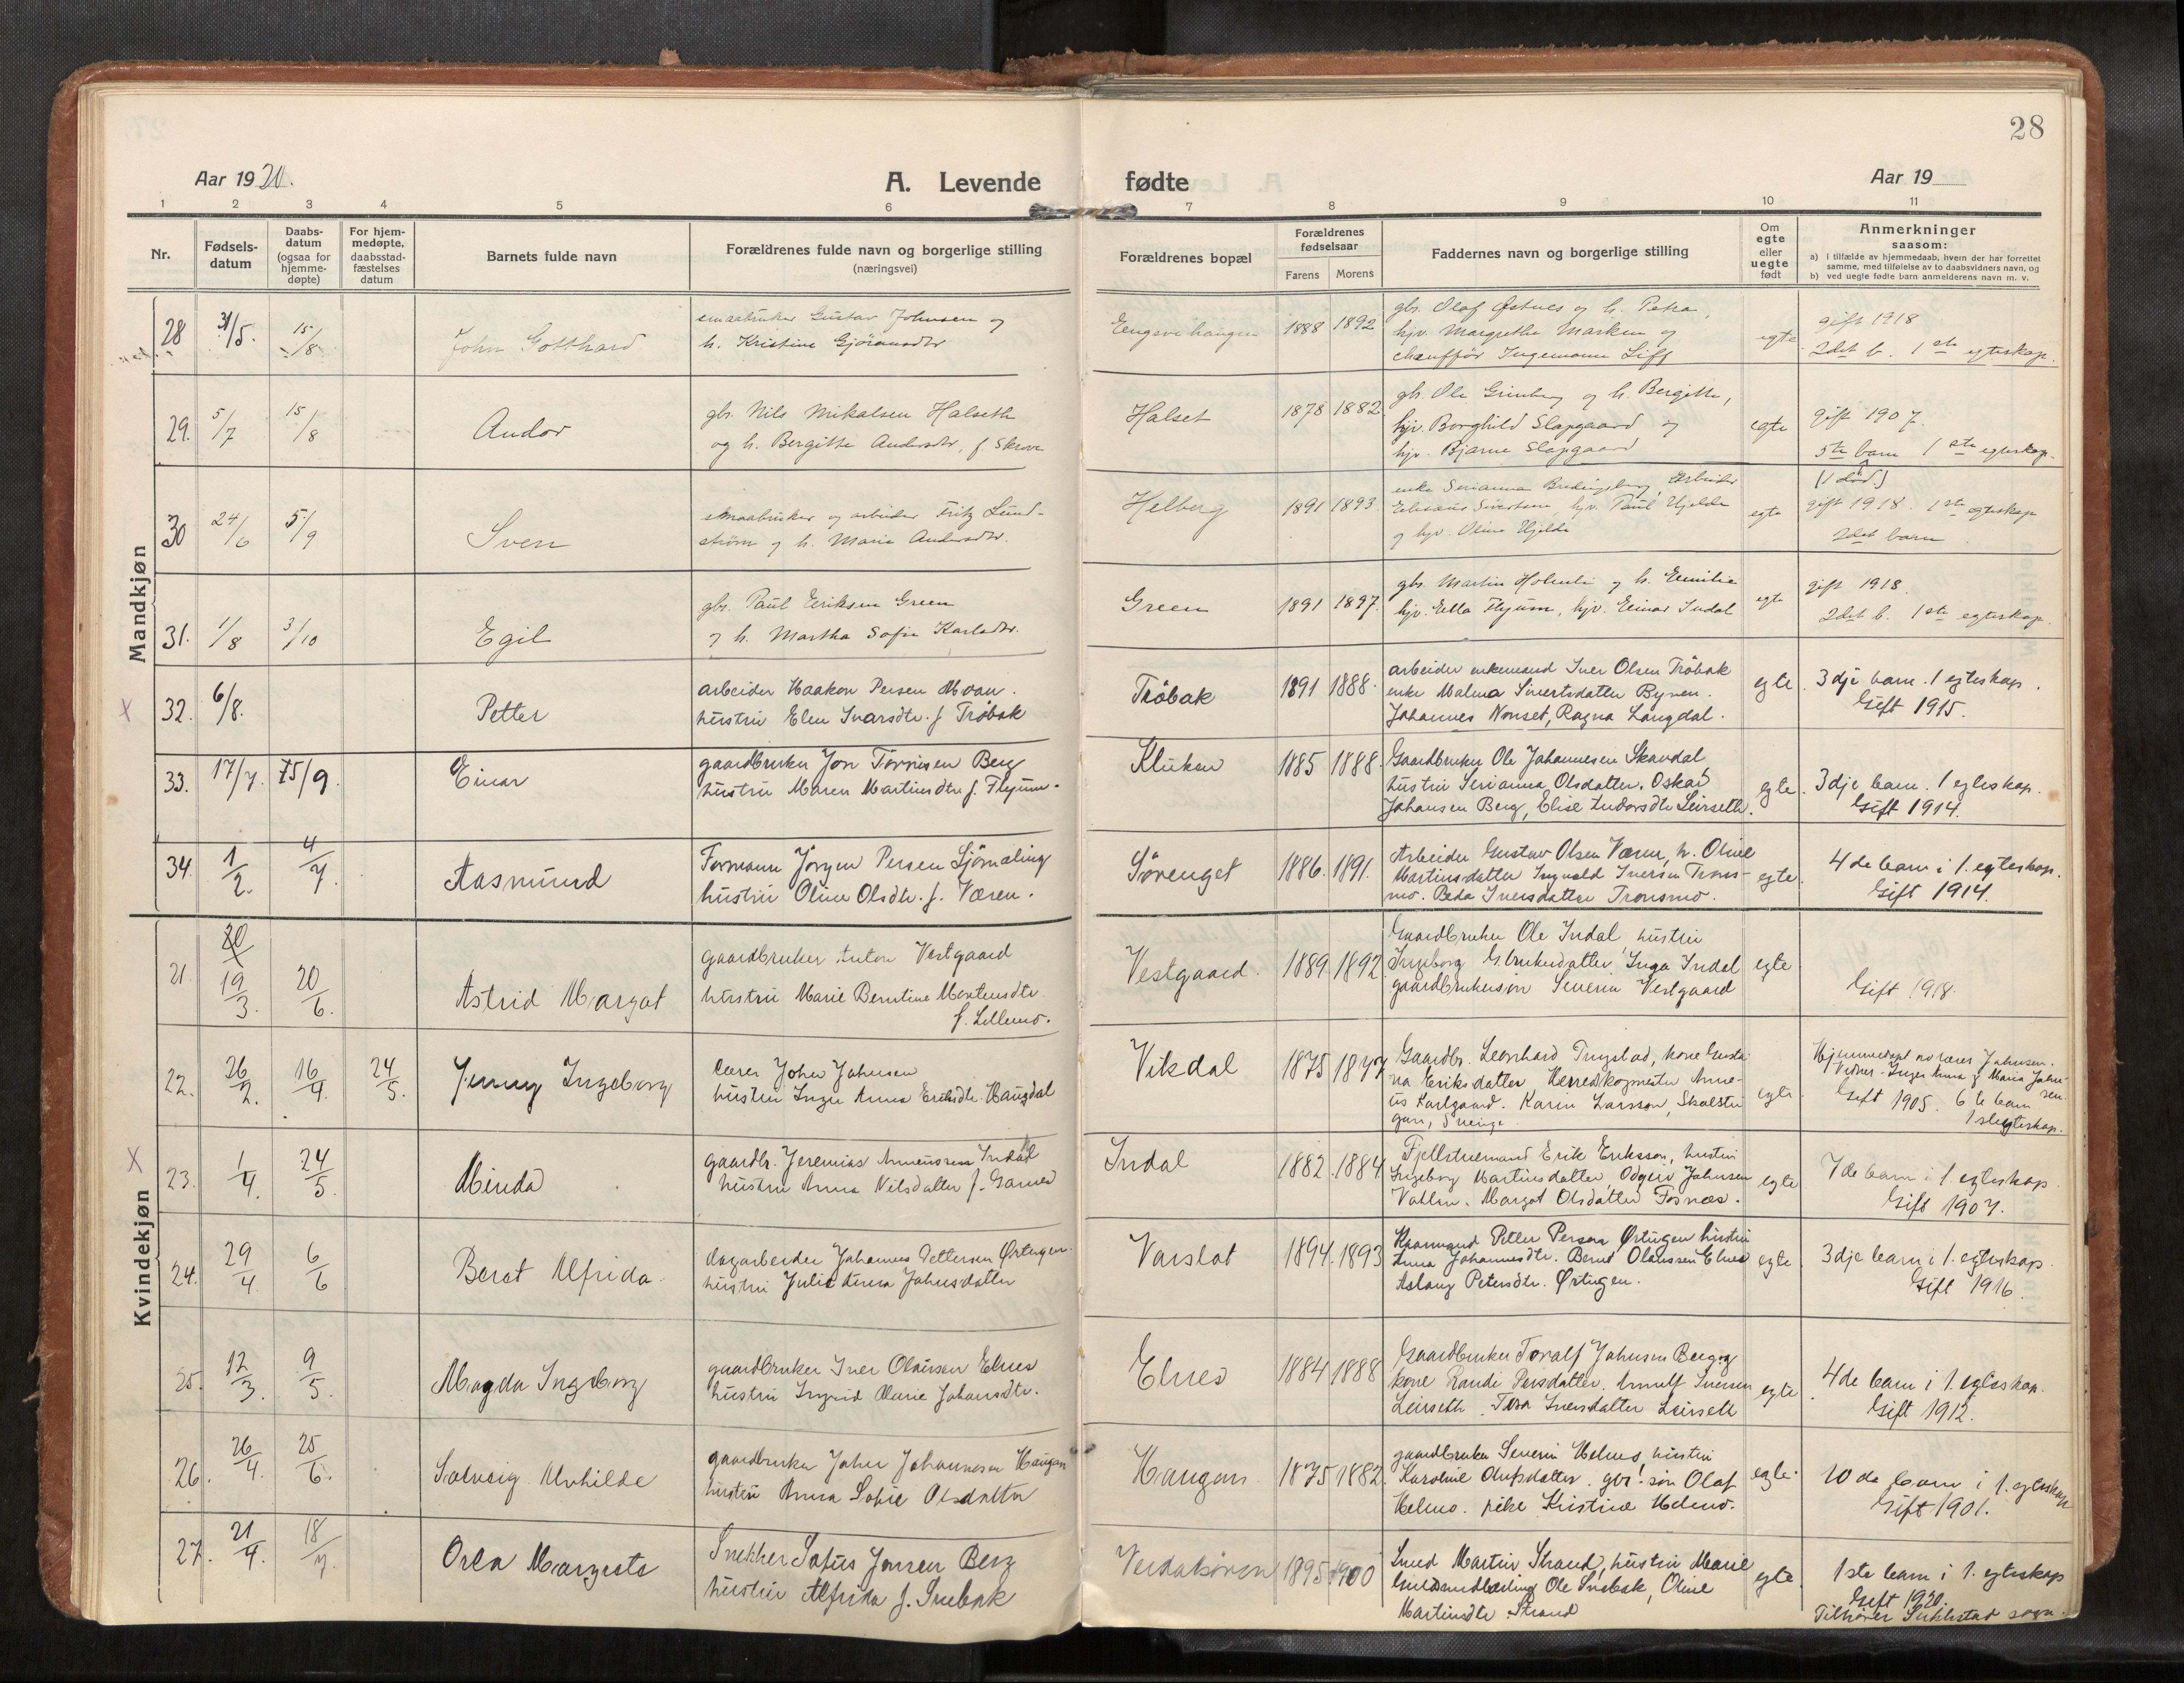 28
Aar 1920.
A. Levende fødte
Aar 19
1 2 3 4 5 6 7 8 9 10 11
Nr.
Fødsels-
datum
Daabs-
datum
(ogsaa for
hjemme-
døpte)
For hjem-
medøpte,
daabsstad-
fæstelses
datum
Barnets fulde navn
Forældrenes fulde navn og borgerlige stilling
(næringsvei)
Forældrenes bopæl
Forældrenes
fødselsaar
Farens Morens
Faddernes navn og borgerlige stilling
Om
egte
eller
uegte
født
Anmerkninger
saasom:
a) i tilfælde av hjemmedaab, hvem der har forrettet
samme, med tilføielse av to daabsvidners navn, og
b) ved uegte fødte barn anmelderens navn m. v.
Mandkjøn
28 31/5. 15/8 John Gotthard
smaabruker Gustav Johnsen og
h. Kristine Gjöransdtr
1888 1892
gbr. Olaf Østnes og h. Petra,
hjv. Margrethe Marken og
chauffør Ingemann Lift
egte
gift 1918
2det b. 1ste egteskap.
29. 5/7 15/8 Andor
gbr. Nils Mikalsen Halseth
og h. Bergitte Andersdtr, f. Skrove
Halset 1878 1882
gb. Ole Grinberg og h. Bergitte,
hjv. Borghild Slapgaard og
hjv. Bjarne Slapgaard
egte
gift 1907.
5te barn 1ste egteskap.
(1 død)
30 24/6 5/9 Sven
smaabruker og arbeider Fritz Lund-
ström og h. Marie Andersdtr.
Helberg 1891 1893
enke Serianna Bredingsberg, Arbeider
Sivertsen, hjv. Paul Hjelde
og hjv. Oline Hjelde
egte
gift 1918. 1ste egteskap
2det barn
31. 1/8 3/10 Egil
gbr. Paul Eriksen Green
og h. Martha Sofie Karlsdtr.
Green 1891 1897.
gbr. Martin Holmli og h. Emilie
hjv. Ella Flyum, hjv. Einar Indal
egte
gift 1918.
2det b. 1ste egteskap.
X 32. 6/8. Petter
arbeider Haakon Persen Moan.
hustru Elen Ivarsdtr. f. Tröbak
Tröbak 1891 1888.
arbeider enkemand Iver Olsen Tröbak
enke Malena Sivertsdatter Bynen.
Johannes Nonset, Ragna Langdal.
egte.
3dje barn. 1 egteskap.
Gift 1915.
33. 17/7. 15/9. Einar
gaardbruker Jon Tonnisen Berg
hustru Maren Martinsdtr f. Flyum.
Kluken 1885 1888.
Gaardbruker Ole Johannesen Skavdal,
hustru Serianna Olsdatter. Oskar
Johansen Berg, Elise Andorsdtr Leirseth.
egte.
3dje barn. 1 egteskap.
Gift 1914.
34. 1/2. 4/7. Aasmund
Formann Jörgen Persen Sjömæling
hustru Oline Olsdtr. f. Væren.
Sörenget 1886. 1891.
Arbeider Gustav Olsen Væren, h. Oline
Martinsdatter Ingvald Iversen Trons-
mo. Beda Iversdatter Tronsmo.
egte.
4de barn i 1. egteskap.
Gift 1914.
Kvindekjøn
21. 19/3. 20/6. Astrid Margot
gaardbruker Anton Vestgaard
hustru Marie Berntine Mortensdtr.
f. Lillemo.
Vestgaard. 1889 1892
Gaardbruker Ole Indal, hustru
Ingeborg G.brukerdatter, Inga Indal
gaardbrukersön Severin Vestgaard
egte
Gift 1918.
22. 26/2. 16/4. 24/5. Jenny Ingeborg
Lærer John Johnsen
hustru Inger Anna Eriksdtr. Haugdal
Vitsdal 1875 1877
Gaardbr. Leonhard Tingstad, kone Gusta-
va Eriksdatter Herredskasserer Arne-
us Karlgaard. Karin Larsson, Skalstu-
gan, Sverige
egte.
Hjemmedøpt av lærer Johnsen.
Vidner: Inger Anna og Maria John-
sen.
Gift 1905. 6te barn
1ste egteskap.
X 23. 1/4. 24/5. Minda
gaardbr. Jeremias Arneussen Indal
hustru Anna Nilsdatter f. Garnes
Indal 1882. 1884
Fjellstuemand Erik Eriksson, hustru
Ingeborg Martinsdatter, Odgeir Johnsen
Vahlen. Margot Olsdatter Fosnæs.
egte
7de barn i 1. egteskap.
Gift 1907.
24. 29/4. 6/6 Beret Alfrida.
dagarbeider Johannes Pettersen Örtugen.
hustru Julie Anna Johnsdatter
Varslot 1894. 1893
Kaarmand Petter Person Örtugen hustru
Anna Johannesdtr. Bernt Olaussen Elnes
Aslaug Petersdtr. Örtugen.
egte
3dje barn i 1. egteskap.
Gift 1916.
25. 12/3. 9/5. Magda Ingeborg
gaardbruker Iver Olaussen Elnes
hustru Ingrid Marie Johansdtr.
Elnes 1884 1888
Gaardbruker Toralf Johnsen Berg og
kone Randi Persdatter. Arnulf Iversen
Leirseth. Tora Iversdatter Leirseth
egte
4de barn i 1. egteskap.
Gift 1912.
26. 26/4. 25/6. Solveig Alvhilde
gaardbruker John Johannesen Haugan
hustru Anna Sofie Olsdatter
Haugan 1875 1882.
gaardbruker Severin Helmo, hustru
Karoline Olufsdatter. gbr. sön Olaf
Helmo. pike Kristine Helmo.
egte.
10de barn i 1. egteskap
Gift 1901.
27. 21/4. 18/7. Orla Margrete
Snekker Sofus Jonsen Berg
hustru Alfrida f. Snebak
Verdalsören 1895 1900
Smed Martin Strand, hustru Marie
Ole Snebak, Oline
Martinsdtr Strand
egte.
1ste barn i 1. egteskap
Gift 1920.
Tilhörer Stiklestad sogn.